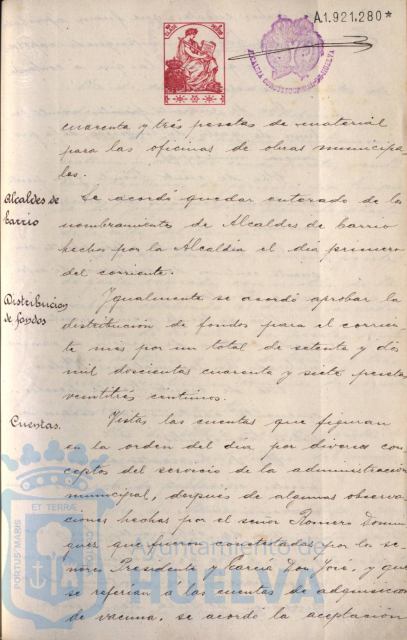 A1.921.280*
ALCALDIA CONSTITUCIONAL HUELVA
cuarenta y tres pesetas de material
para las oficinas de obras municipa-
les.
Alcaldes de
barrio
Se acordó quedar enterado de los
nombramientos de Alcaldes de barrio
hechos por la Alcaldía el día primero
del corriente.
Distribucion
de fondos
Igualmente se acordó aprobar la
distribución de fondos para el corrien-
te mes por un total de setenta y dos
mil doscientas cuarenta y siete pesetas
veintitrés céntimos.
Cuentas.
Vistas las cuentas que figuran
en la orden del día por diversos con-
ceptos del servicio de la administración
municipal, después de algunas observa-
ciones hechas por el señor Romero Domin-
guez que fueron contestadas por los se-
ñores Presidente y García Don José, y que
se referian a las cuentas de adquisicion
de vacuna, se acordó la aceptación
ET TERRÆ
PORTUS MARIS
Ayuntamiento de
HUELVA